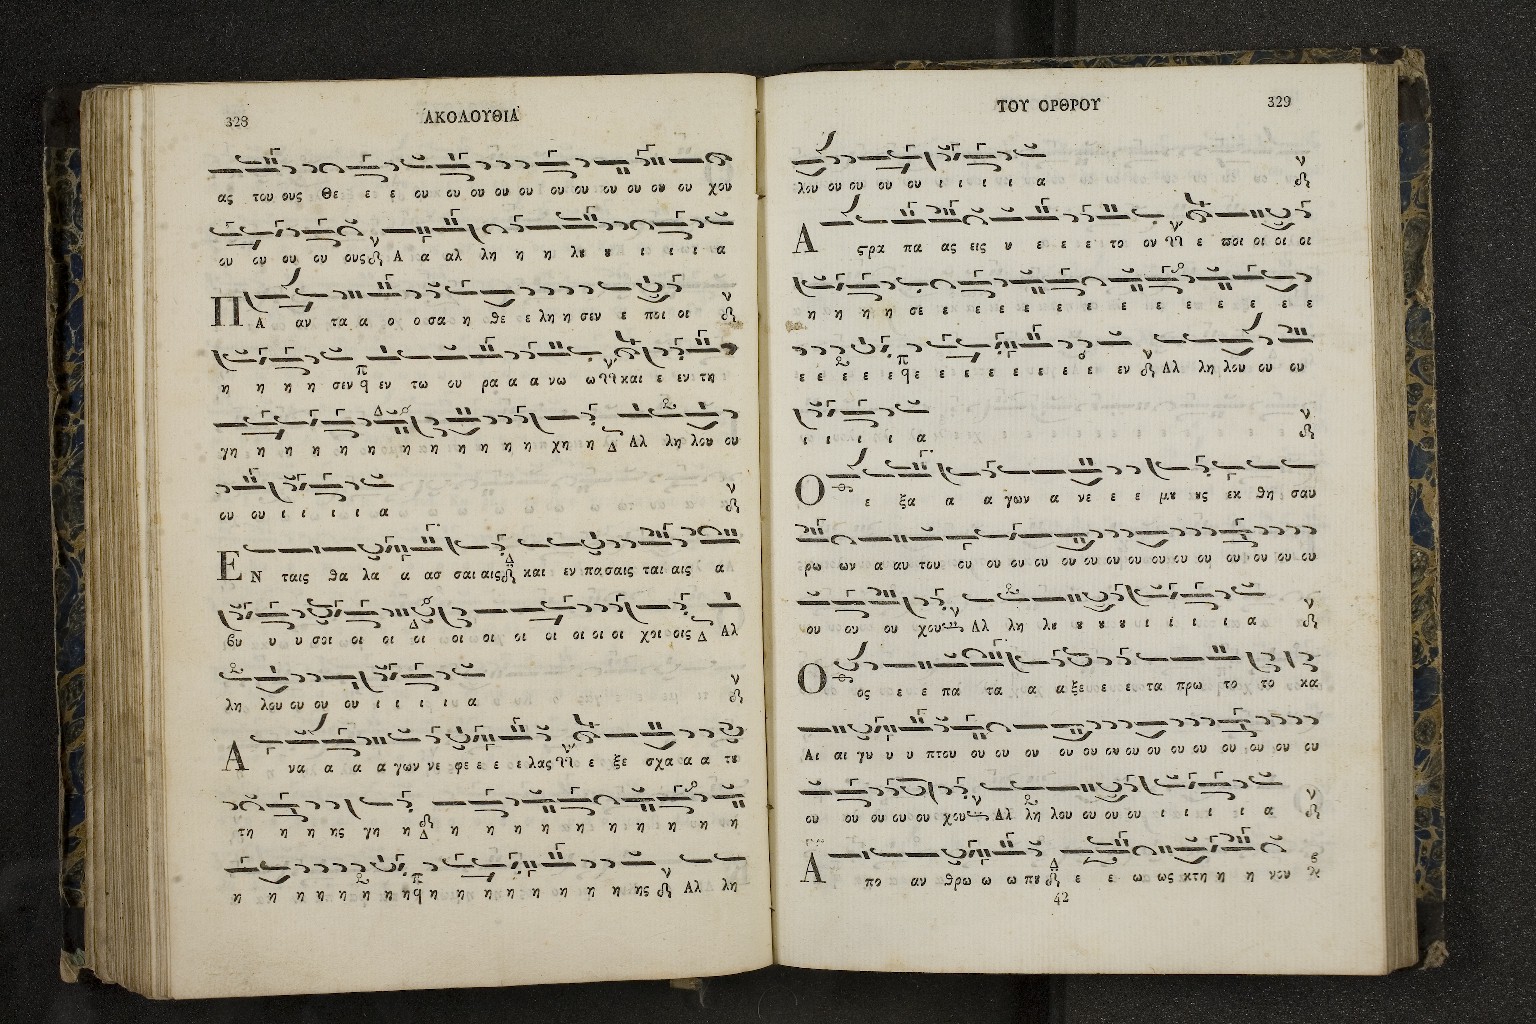 328
ΑΚΟΛΟΥΘΙΑ
ας του ους Θε ε ε ου ου ου ου ου ου ου ου ου ου χου
ου ου ου ου ους Α α αλ λη η η λȣ ȣ ι ι ι α
Π Α αν τα α ο ο σα η θε ε λη η σεν ε ποι οι
η η η η σεν εν τω ου ρα α α νω ω και ε εν τη
γη η η η η η η η η η η η χη η Αλ λη λου ου
ου ου ι ι ι ι α
Ε Ν ταις θα λα α ασ σαι αις και εν πα σαις ται αις α
βυ υ υ σοι οι οι οι οι οι οι οι οι οι οι χοι οις Αλ
λη λου ου ου ου ι ι ι ι α
Α να α α α γων νε φε ε ε ε λας ε ξε σχα α α τȣ
τη η η ης γη η η η η η η η η η η η
η η η η η η η η η η η η η η η η ης Αλ λη
ΤΟΥ ΟΡΘΡΟΥ
329
λου ου ου ου ου ι ι ι ι α
Α ϛρα πα ας εις υ ε ε ε το ον ε ποι οι οι οι
η η η η σε ε ε ε ε ε ε ε ε ε ε ε ε
ε ε ε ε ε ε ε ε ε ε ε ε ε εν Αλ λη λου ου ου
ι ι ι ι α
Ο ε ξα α α γων α νε ε ε μȣ ȣς εκ θη σαυ
ρω ων α αυ του ου ου ου ου ου ου ου ου ου ου ου ου ου
ου ου ου χου Αλ λη λȣ ȣ ȣ ȣ ι ι ι ι α
Ο ος ε ε πα τα α α ξε ε ε τα πρω το το κα
Αι αι γυ υ υ πτου ου ου ου ου ου ου ου ου ου ου ου ου ου ου ου
ου ου ου ου ου χου Αλ λη λου ου ου ου ι ι ι ι α
Α πο αν θρω ω ω πȣ ε ε ω ως κτη η η νου
42